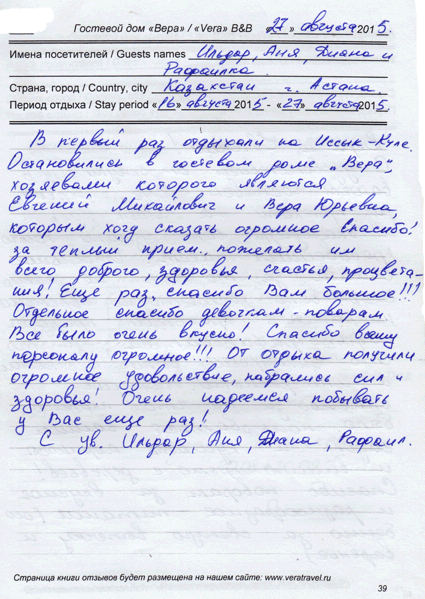 Гостевой дом «Вера» / «Vera» B&B «27» августа 2015.
Имена посетителей / Guests names Ильдар, Аня, Диана и
Рафаилка.
Страна, город / Country, city Казахстан г. Астана.
Период отдыха / Stay period «16» августа 2015 - «27» августа 2015.
В первый раз отдыхали на Иссык-Куле.
Остановились в гостевом доме „Вера",
хозяевами которого являются
Евгений Михайлович и Вера Юрьевна,
которым хочу сказать огромное спасибо!
за тёплый прием., пожелать им
всего доброго, здоровья, счастья, процвета-
ния! Еще раз спасибо Вам большое!!!
Отдельное спасибо девочкам - поварам
Все было очень вкусно! Спасибо всему
персоналу огромное!!! От отдыха получили
огромное удовольствие, набрались сил и
здоровья! Очень надеемся побывать
у Вас еще раз!
С ув. Ильдар, Аня, Диана, Рафаил.
Страница книги отзывов будет размещена на нашем сайте: www.veratravel.ru
39